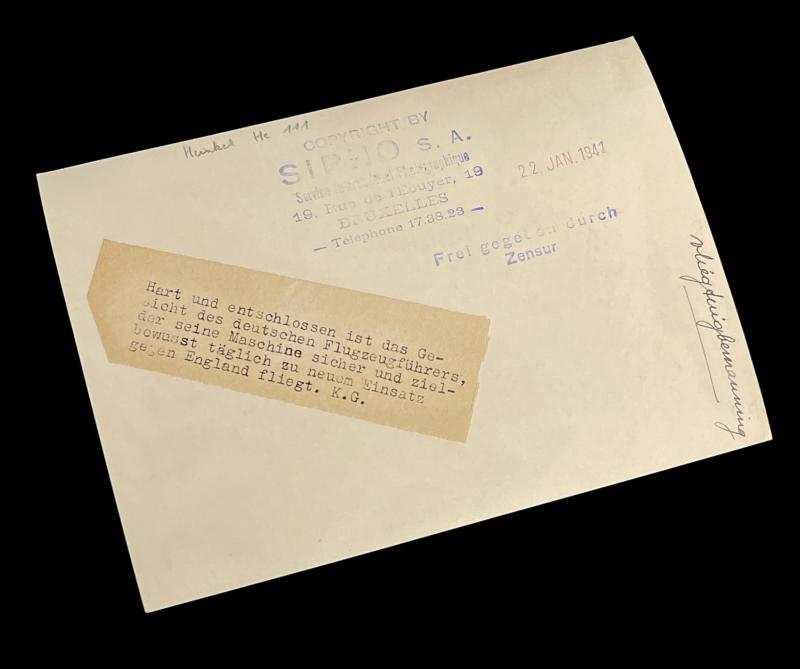 Heinkel He 111
COPYRIGHT BY
SIPHO S. A.
Service International Photographique
19. Rue de l'Ecuyer, 19
BRUXELLES
— Téléphone 17.38.23 —
22. JAN. 1941
Frei gegeben durch
Zensur
vliegtuigbemanning
Hart und entschlossen ist das Ge-
sicht des deutschen Flugzeugführers,
der seine Maschine sicher und ziel-
bewusst täglich zu neuem Einsatz
gegen England fliegt. K.G.